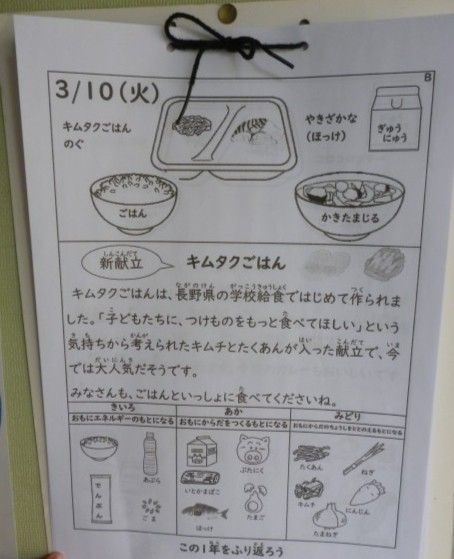 B
3/10(火)
キムタクごはん
のぐ
やきざかな
(ほっけ)
ぎゅう
にゅう
ごはん
かきたまじる
新献立
しんこんだて
キムタクごはん
キムタクごはんは、長野県の学校給食ではじめて作られま
した。「子どもたちに、つけものをもっと食べてほしい」という
気持ちから考えられたキムチとたくあんが入った献立で、今
では大人気だそうです。
みなさんも、ごはんといっしょに食べてくださいね。
きいろ
おもにエネルギーのもとになる
あか
おもにからだをつくるもとになる
みどり
おもにからだのちょうしをととのえるもとになる
あぶら
でんぷん
ごま
ぶたにく
いとかまぼこ
たまご
ほっけ
たくあん
ねぎ
キムチ
にんじん
たまねぎ
この1年をふり返ろう